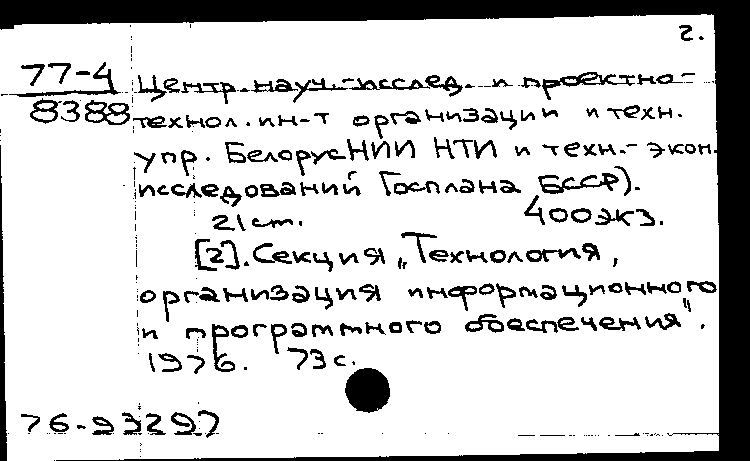 2.
77-4 Центр. науч.-исслед. и проектно-
8388 технол. ин-т организации и техн.
упр. БелорусНИИ НТИ и техн.- экон.
исследований Госплана БССР).
21 cm. 400 экз.
[2]. Секция „Технология,
организация информационного
и программного обеспечения".
1976. 73 с.
76-93297